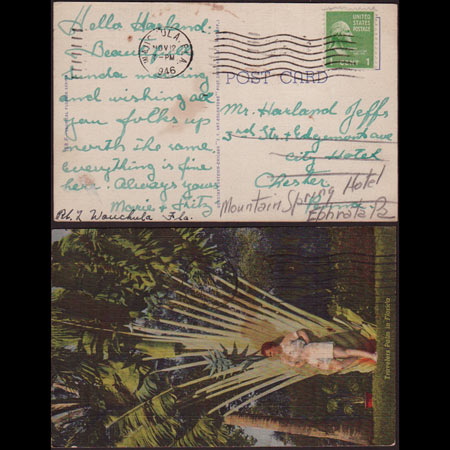 Hello Harland.
A Beautiful
Sunda morning
and wishing all
you folks up
north the same.
Everything is fine
here. Always yours
Marie + Fritz
Rt. 2 Wauchula Fla.
NOV 12
PM
1946
UNITED STATES
POSTAGE
1 CENT 1
POST CARD
Mr. Harland Jeffs
3rd Str + Edgemont ave
City Hotel
Chester
Penna
Mountain Spring Hotel
Ephrata Pa
Travelers Palm in Florida